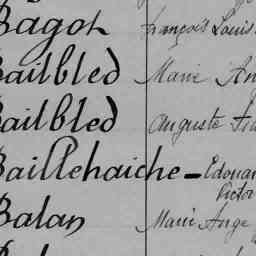 Bagot François Louis
Bailbled Marie
Bailbled Auguste
Baillehaiche - Edouar
Victor
Balan Marie Ange